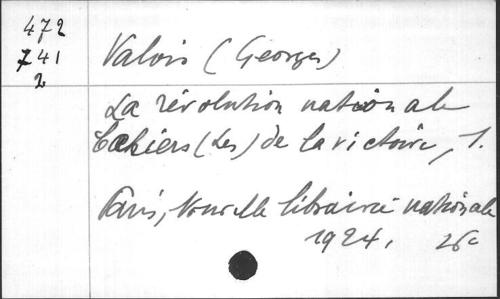 472
741
2
Valois (Georges)
La révolution nationale
Cahiers (Les) de la victoire, 1.
Paris, Nouvelle librairie nationale
1924. 26c